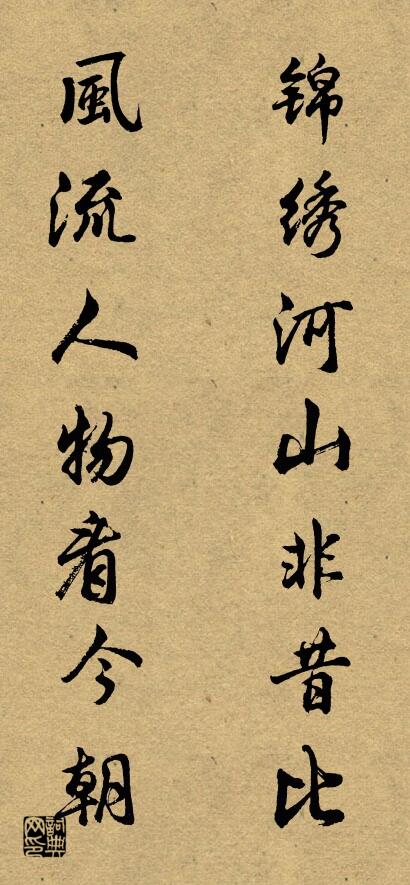 锦绣河山非昔比
風流人物看今朝